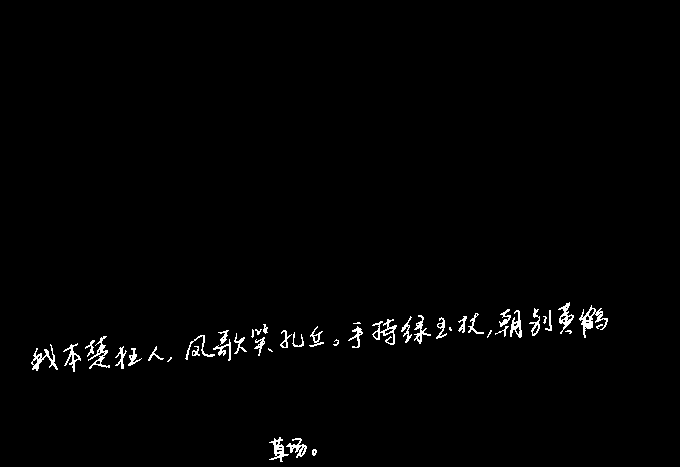 我本楚狂人，凤歌笑孔丘。手持绿玉杖，朝别黄鹤
草场。